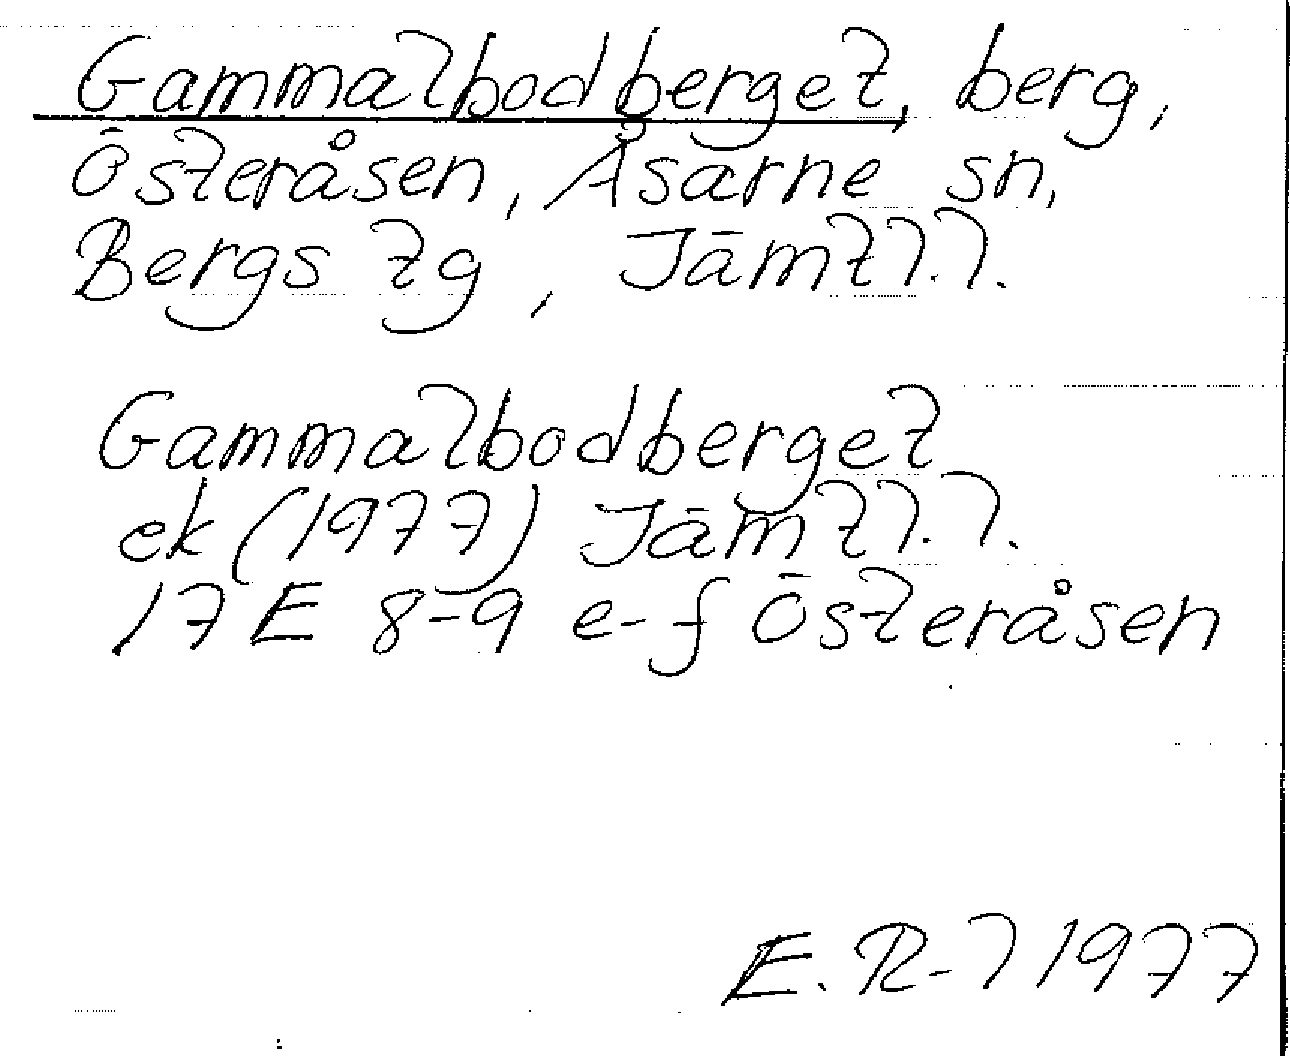 Gammalbodberget, berg,
Österåsen, Åsarne sn,
Bergs tg, Jämtl.l.
Gammalbodberget
ek (1977) Jämtl.l.
17E 8-9 e-f Österåsen
E.R-l 1977